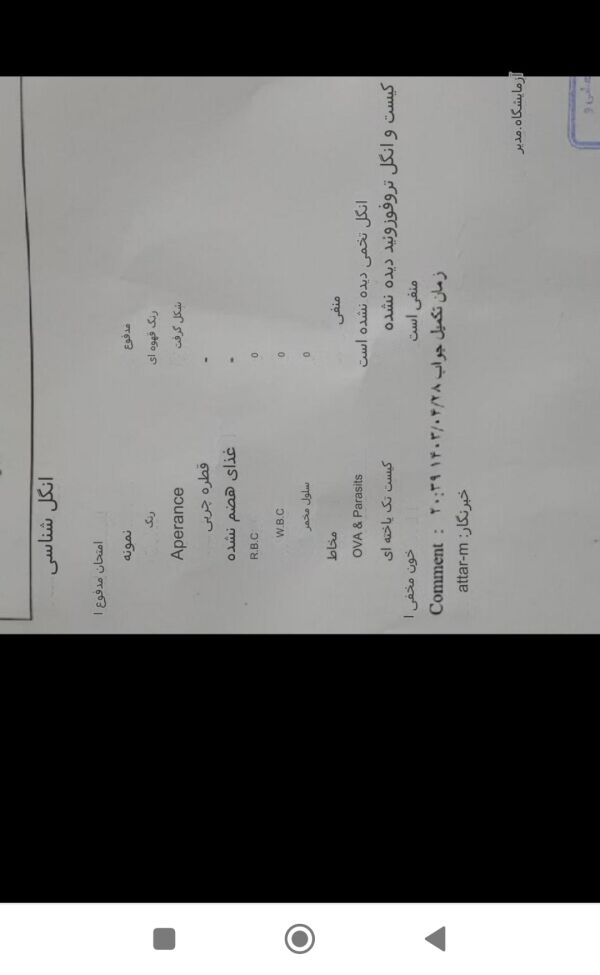 انگل شناسی
امتحان مدفوع ا
نمونه مدفوع
رنگ رنگ قهوه ای
Aperance شکل گرفت
قطره چربی -
غذای هضم نشده -
R.B.C 0
W.B.C 0
سلول مخمر 0
مخاط منفی
OVA & Parasits انگل تخمی دیده نشده است
کیست تک یاخته ای کیست و انگل تروفوزوئید دیده نشده
خون مخفی ا منفی است
Comment : ۲۰:۳۹ ۱۴۰۳/۰۴/۲۸ زمان تکمیل جواب
خبرنگار: attar-m
آزمایشگاه.مدیر